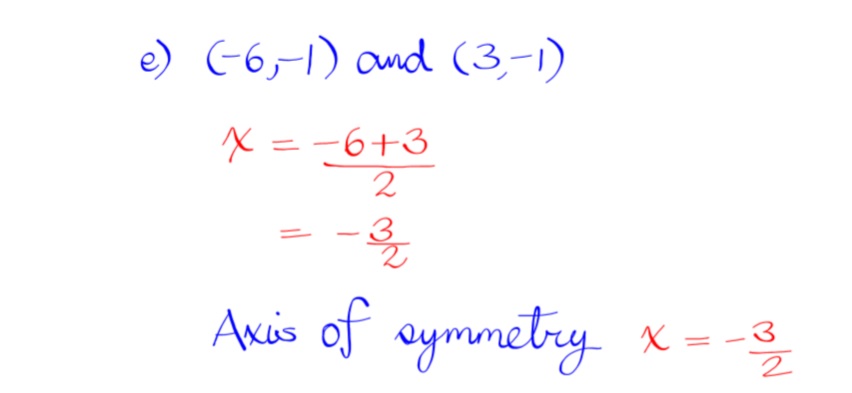 e) (-6,-1) and (3,-1)
x = \frac{-6+3}{2}
= -\frac{3}{2}
Axis of symmetry x = -\frac{3}{2}